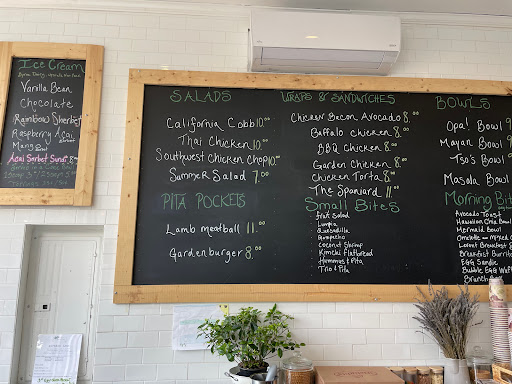 Ice Cream
Vanilla Bean
Chocolate
Rainbow Sherbet
Raspberry Acai
Sorbet
Mang
Acai Sorbet
SALADS
California Cobb 10.00
Thai Chicken 10.00
Southwest Chicken Chop 10.00
Summer Salad 7.00
PITA POCKETS
Lamb meatball 11.00
Gardenburger 8.00
WRAPS & SANDWICHES
Chicken Bacon Avocado 8.00
Buffalo chicken 8.00
BBQ Chicken 8.00
Garden Chicken 8.00
Chicken Torta 8.00
The Spaniard 11.00
Small Bites
Fruit Salad
Lumpia
Quesadilla
Gazpacho
Coconut Shrimp
Kimchi Flatbread
Hummus & Pita
Trio & Pita
BOWLS
Opa! Bowl
Mayan Bowl
Tso's Bowl
Masala Bowl
Morning Bit
Avocado Toast
Hawaiian Chia Bowl
Mermaid Bowl
Omelette
Breakfast
Breakfast Burrito
EGG Sandie
Bubble EGG Waff
Brunch